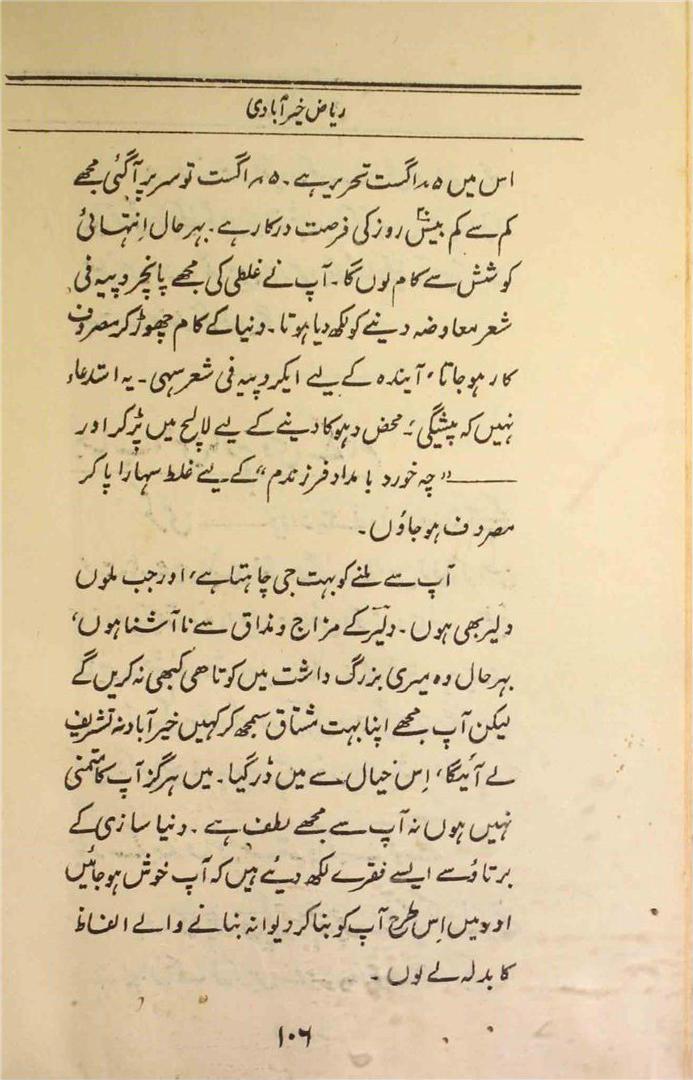 ریاض خیرآبادی
اس میں ۵ اگست تحریر ہے۔ ۵ اگست تو سر پر آگئی مجھے
کم سے کم بیس۲۰ روز کی فرصت درکار ہے۔ بہرحال اِنتہائی
کوشش سے کام لوں گا۔ آپ نے غلطی کی مجھے پانچروپیہ فی
شعر معاوضہ دینے کو لکھ دیا ہوتا۔ دنیا کے کام چھوڑ کر مصروف
کار ہو جاتا، آیندہ کے لیے ایکروپیہ فی شعر سہی۔ یہ استدعاء
نہیں کہ پیشگی؛ محض دہوکا دینے کے لیے لالچ میں پڑ کر اور
——"چہ خورد بامداد فرزندم" کے لیے غلط سہارا پا کر
مصروف ہو جاؤں۔
آپ سے ملنے کو بہت جی چاہتا ہے، اور جب ملوں
دلیر بھی ہوں۔ دلیر کے مزاج و مذاق سے نا آشنا ہوں،
بہرحال وہ میری بزرگ داشت میں کوتاھی کبھی نہ کریں گے
لیکن آپ مجھے اپنا بہت مشتاق سمجھ کر کہیں خیرآباد نہ تشریف
لے آئیگا، اِس خیال سے میں ڈر گیا۔ میں ہرگز آپ کا متمنی
نہیں ہوں نہ آپ سے مجھے لطف ہے۔ دنیا سازی کے
برتاؤ سے ایسے فقرے لکھ دیئے ہیں کہ آپ خوش ہو جائیں
اور میں اِس طرح آپ کو بنا کر دیوانہ بنانے والے الفاظ
کا بدلہ لے لوں۔
۱۰۶